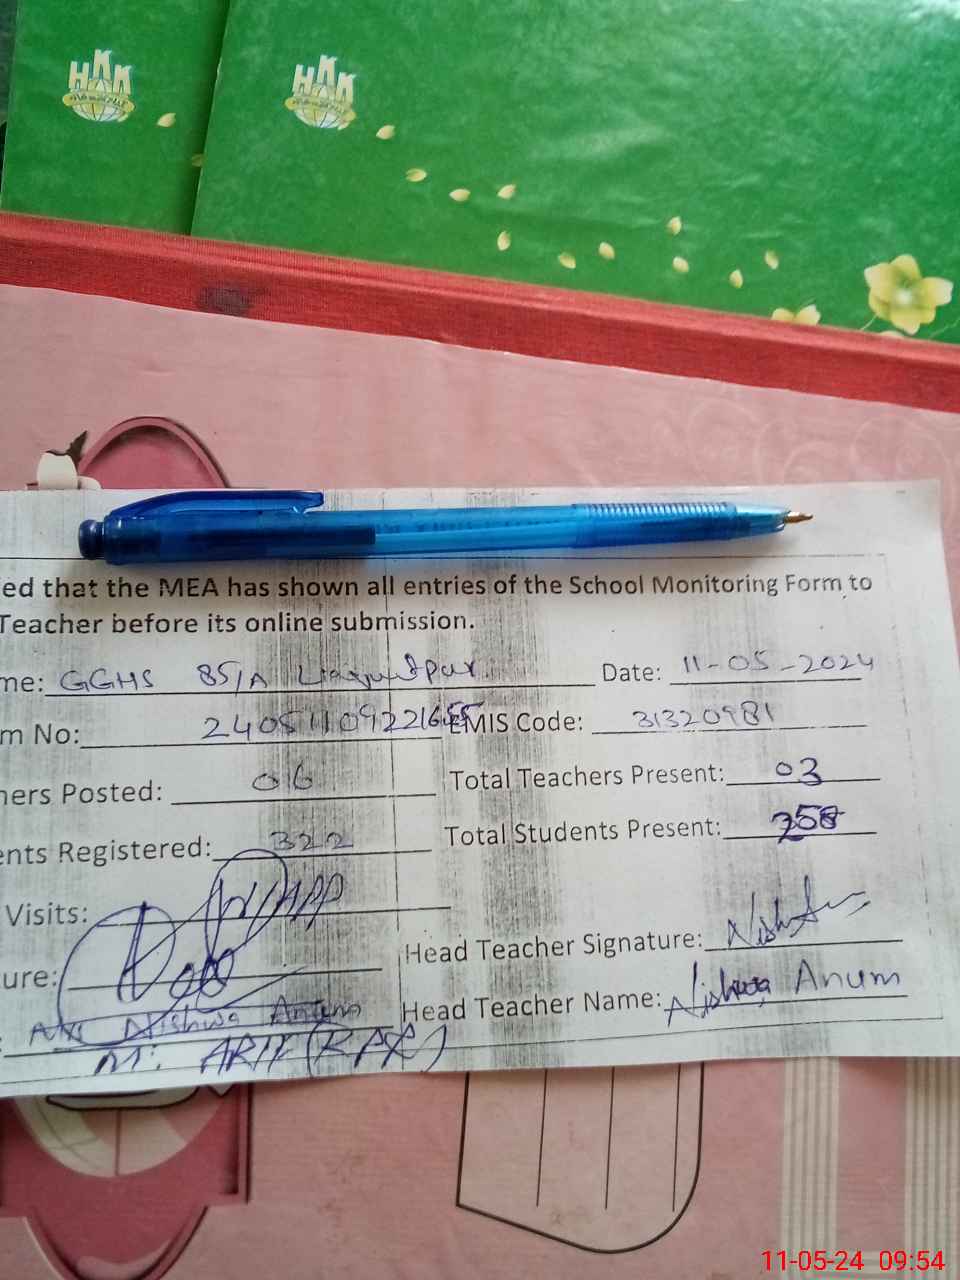 HKK
HKK
ed that the MEA has shown all entries of the School Monitoring Form to
Teacher before its online submission.
me: GGHS 85/A Liaquatpur Date: 11-05-2024
m No: EMIS Code: 31320981
ners Posted: 016 Total Teachers Present: 03
ents Registered: 322 Total Students Present: 258
Visits:
ure: Head Teacher Signature:
Nishwa Anum Head Teacher Name: Nishwa Anum
M. ARIF
11-05-24 09:54